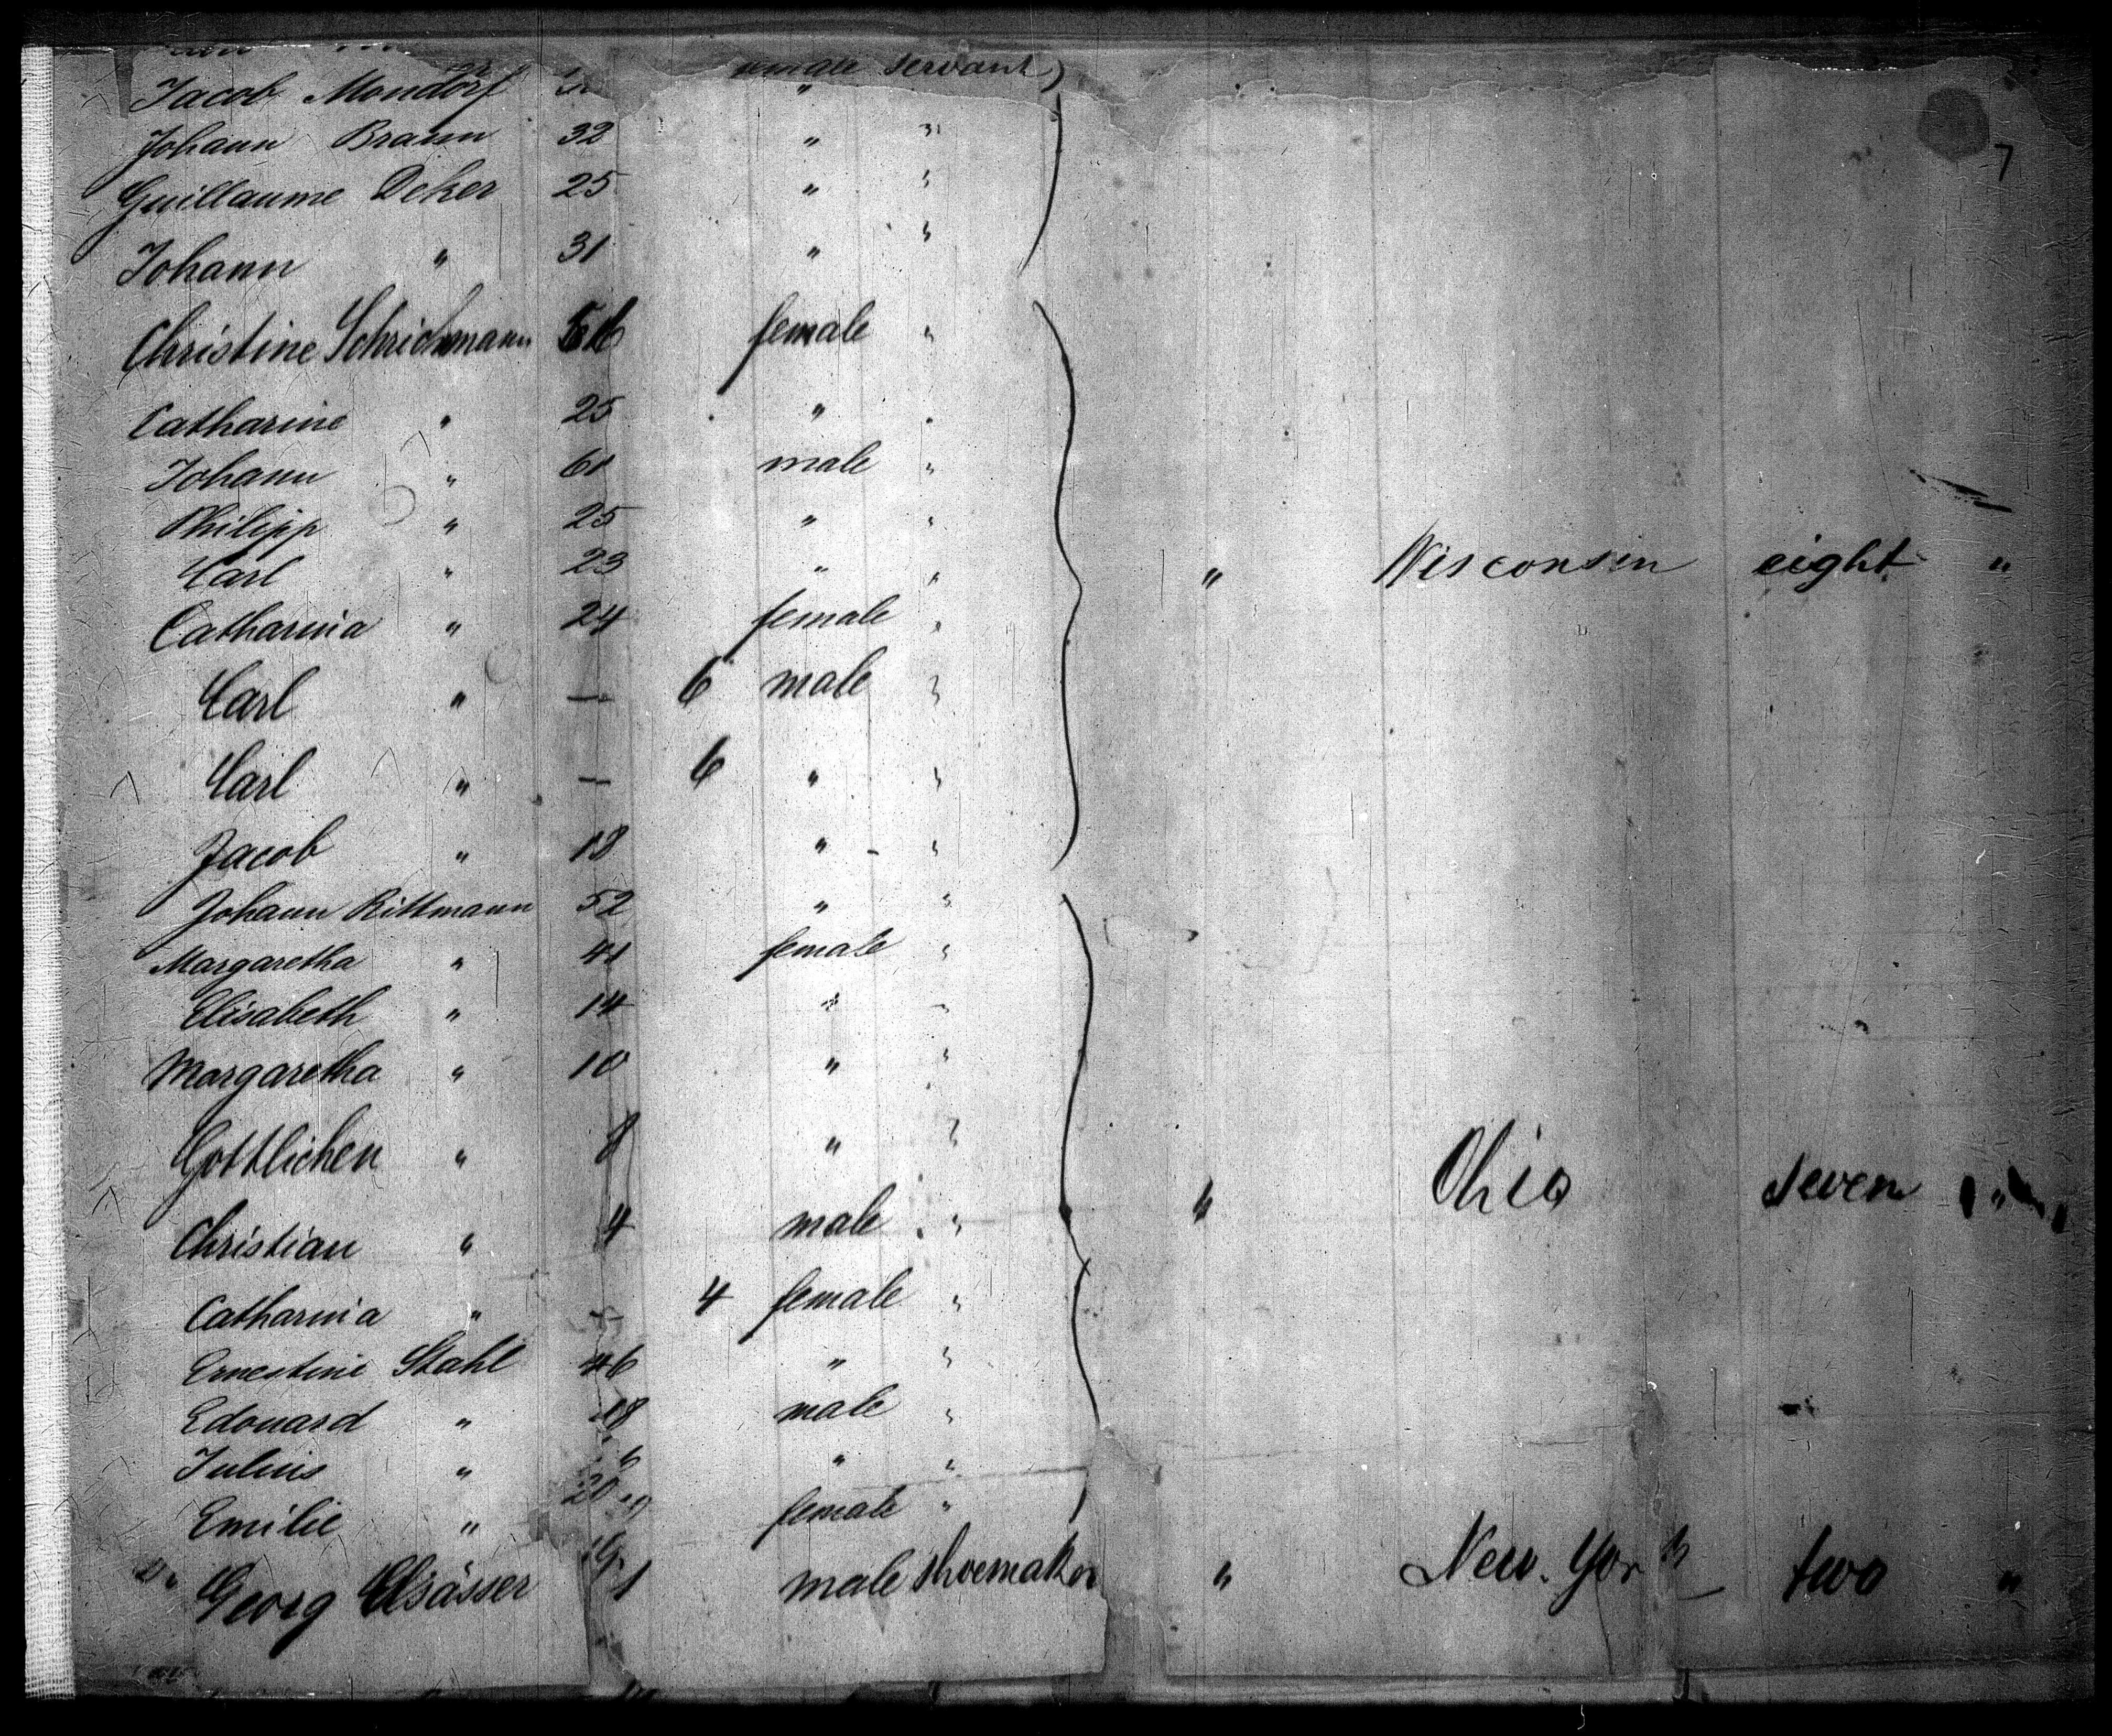 female servant
Jacob Mondorf "
Johann Braun 32 " "
7
Guillaume Deker 25 " "
Johann " 31 " "
Christine female "
Catharine " 25 " "
Johann " 61 male "
Philipp " 25 " "
Carl " 23 " " " Wisconsin eight "
Catharina " 24 female "
Carl " — 6 male "
Carl " — 6 " "
Jacob " 18 " "
Johann Rittmann 52 " "
Margaretha " 41 female "
Elisabeth " 14 " "
Margaretha " 10 " "
Gottlichen " 8 " "
" Ohio seven "
Christian " 4 male "
Catharina " 4 female "
Ernestine Stahl 46 " "
Edouard " 18 male "
Julius " " "
Emilie " female "
Georg Elsässer male shoemaker " New-York two "